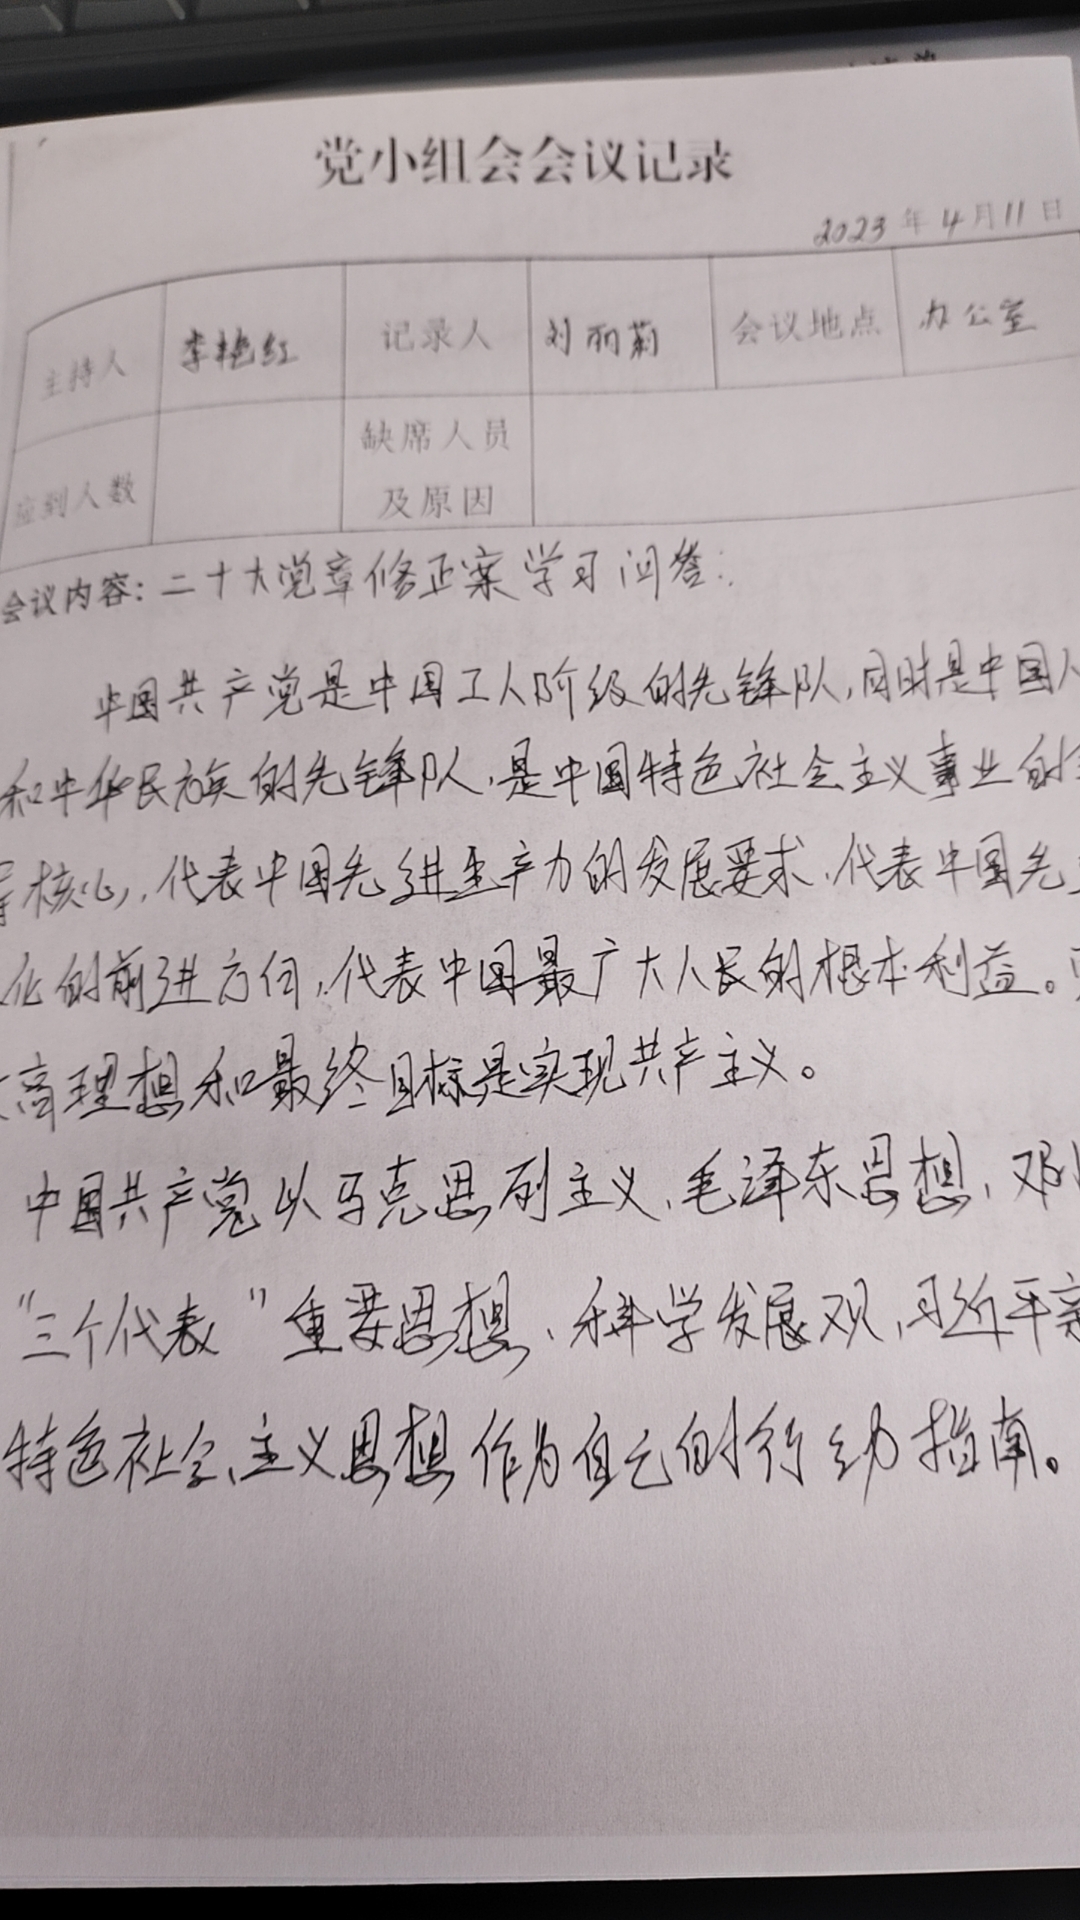 党小组会会议记录
2023年4月11日
主持人 李艳红 记录人 刘丽莉 会议地点 办公室
应到人数 缺席人员及原因
会议内容：二十大党章修正案学习问答：
中国共产党是中国工人阶级的先锋队，同时是中国人
和中华民族的先锋队，是中国特色社会主义事业的
核心，代表中国先进生产力的发展要求，代表中国先
化的前进方向，代表中国最广大人民的根本利益。
高理想和最终目标是实现共产主义。
中国共产党以马克思列主义、毛泽东思想、邓
“三个代表”重要思想、科学发展观，习近平
特色社会主义思想作为自己的行动指南。